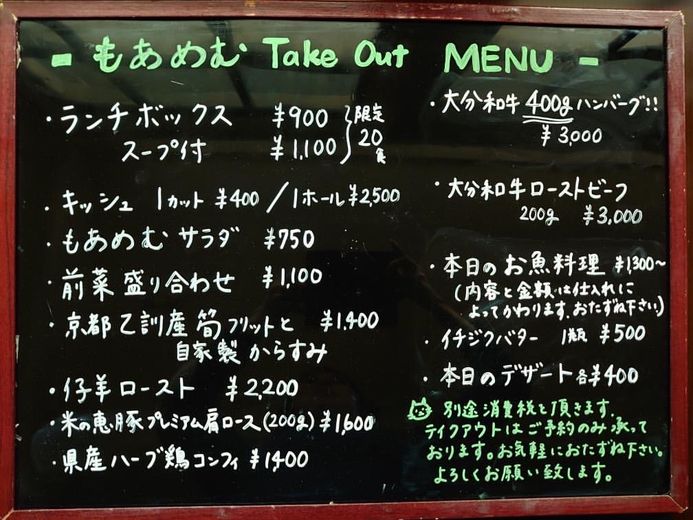 - もあめむ Take Out MENU -
・ランチボックス ¥900
スープ付 ¥1,100
限定
20
食
・キッシュ 1カット ¥400 / 1ホール ¥2,500
・もあめむ サラダ ¥750
・前菜盛り合わせ ¥1,100
・京都乙訓産 筍フリットと ¥1,400
自家製からすみ
・仔羊ロースト ¥2,200
・米の恵豚プレミアム肩ロース(200g) ¥1,600
・県産ハーブ鶏コンフィ ¥1400
・大分和牛 400g ハンバーグ!!
¥3,000
・大分和牛ローストビーフ
200g ¥3,000
・本日のお魚料理 ¥1300~
(内容と金額は仕入れに
よってかわります。おたずね下さい)
・イチジクバター 1瓶 ¥500
・本日のデザート 各¥400
別途消費税を頂きます。
テイクアウトはご予約のみ承って
おります。お気軽におたずね下さい。
よろしくお願い致します。